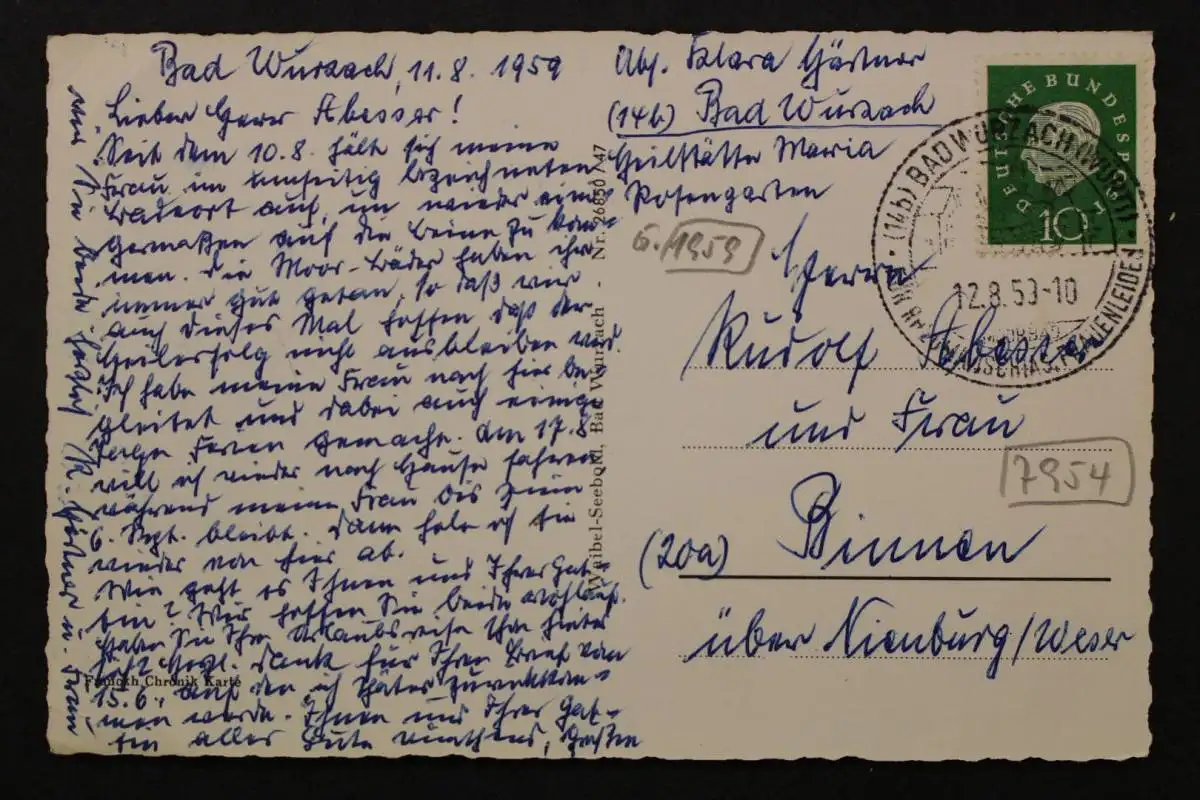 Bad Wurzach, 11.8. 1959
Lieber Herr Abesser!
Seit dem 10.8. hält sich meine
Frau im umseitig bezeichneten
Badeort auf, um wieder eini-
germaßen auf die Beine zu kom-
men. Die Moor-Bäder haben ihr
immer gut getan, so daß wir
auch dieses Mal hoffen daß der
Heilerfolg nicht ausbleiben wird
Ich habe meine Frau nach hier be-
gleitet und dabei auch einige
Tage Ferien gemacht. Am 17.8.
will ich wieder nach Hause fahren
während meine Frau bis zum
6. Sept. bleibt. Dann hole ich sie
wieder von hier ab.
Wie geht es Ihnen und Ihrer Gat-
tin? Wir hoffen Sie beide wohlauf.
Haben Sie Ihre Urlaubsreise schon hinter
sich? Vergl. Dank für Ihren Brief vom
15.6., auf den ich später zurückkom-
men werde. Ihnen und Ihrer Gat-
tin alles Gute wünschend, grüßen
wir Sie beide herzlich K. Gärtner u. Frau
Franckh Chronik Karte
Waibel-Seebohl, Bad Wurzach - Nr. 26850/47
Abs. Klara Gärtner
(14b) Bad Wurzach
Heilstätte Maria
Rosengarten
6. 1959
DEUTSCHE BUNDESPOST
10
(14b) BAD WURZACH (WÜRTT)
12.8.59-10
Herrn
Rudolf Abesser
und Frau
7954
(20a) Binnen
über Nienburg/Weser